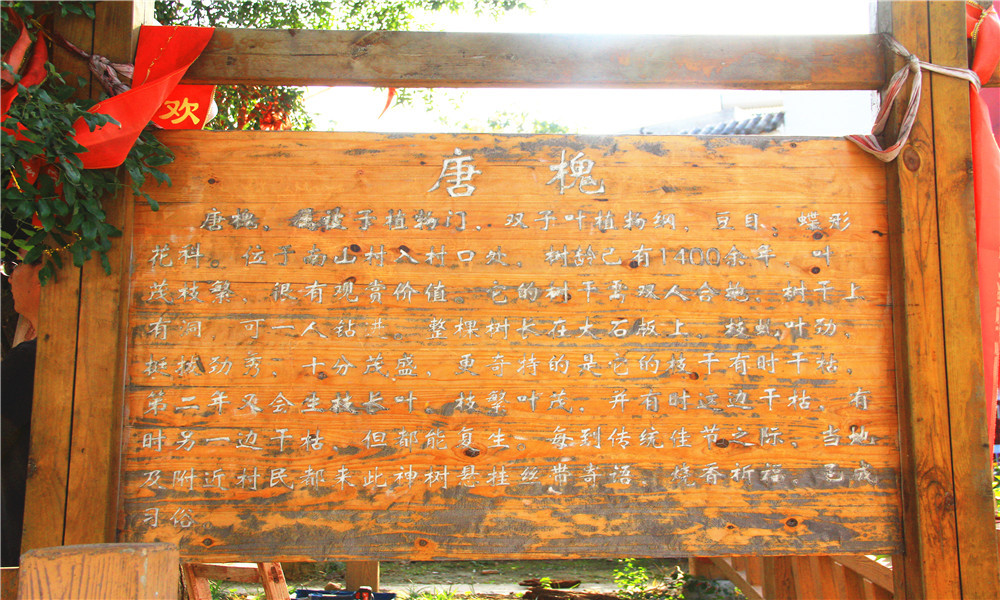 欢
唐槐
唐槐，属被子植物门，双子叶植物纲，豆目，蝶形
花科。位于南山村入村口处，树龄已有1400余年，叶
茂枝繁，很有观赏价值。它的树干需双人合抱，树干上
有洞，可一人钻进。整棵树长在大石板上，枝虬叶劲，
挺拔劲秀，十分茂盛，更奇特的是它的枝干有时干枯，
第二年又会生枝长叶，枝繁叶茂，并有时这边干枯，有
时另一边干枯，但都能复生。每到传统佳节之际，当地
及附近村民都来此神树悬挂丝带寄语，烧香祈福，已成
习俗